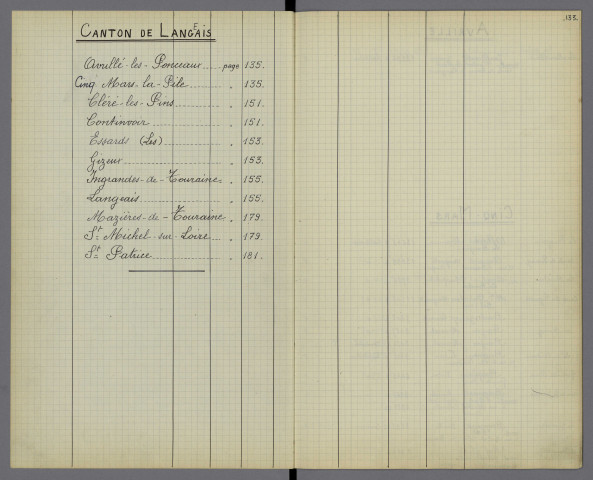 CANTON DE LANGEAIS
Avrillé-les-Ponceaux page 135.
Cinq Mars-la-Pile " 135.
Cléré-les-Pins " 151.
Continvoir " 151.
Essards (Les) " 153.
Gizeux " 153.
Ingrandes-de-Touraine " 155.
Langeais " 155.
Mazières-de-Touraine " 179.
St Michel-sur-Loire " 179.
St Patrice " 181.
133.
AVRILLÉ
CINQ MARS